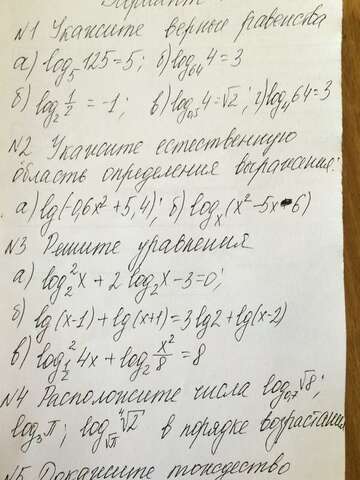 Вариант
№1 Укажите верные равенства
а) log₅125=5; б) log₆₄4=3
б) log₂ 1/2 = -1; в) log₀,₅4=√2; г) log₄64=3
№2 Укажите естественную
область определения выражения:
а) lg(-0,6x²+5,4); б) logₓ(x²-5x-6)
№3 Решите уравнения
а) log₂²x+2log₂x-3=0;
б) lg(x-1)+lg(x+1)=3lg2+lg(x-2)
в) log²_{1/2}4x+log₂ x²/8=8
№4 Расположите числа log₀,₇√8;
log₃π; log_{√π}⁴√2 в порядке возрастания
№5 Докажите тождество